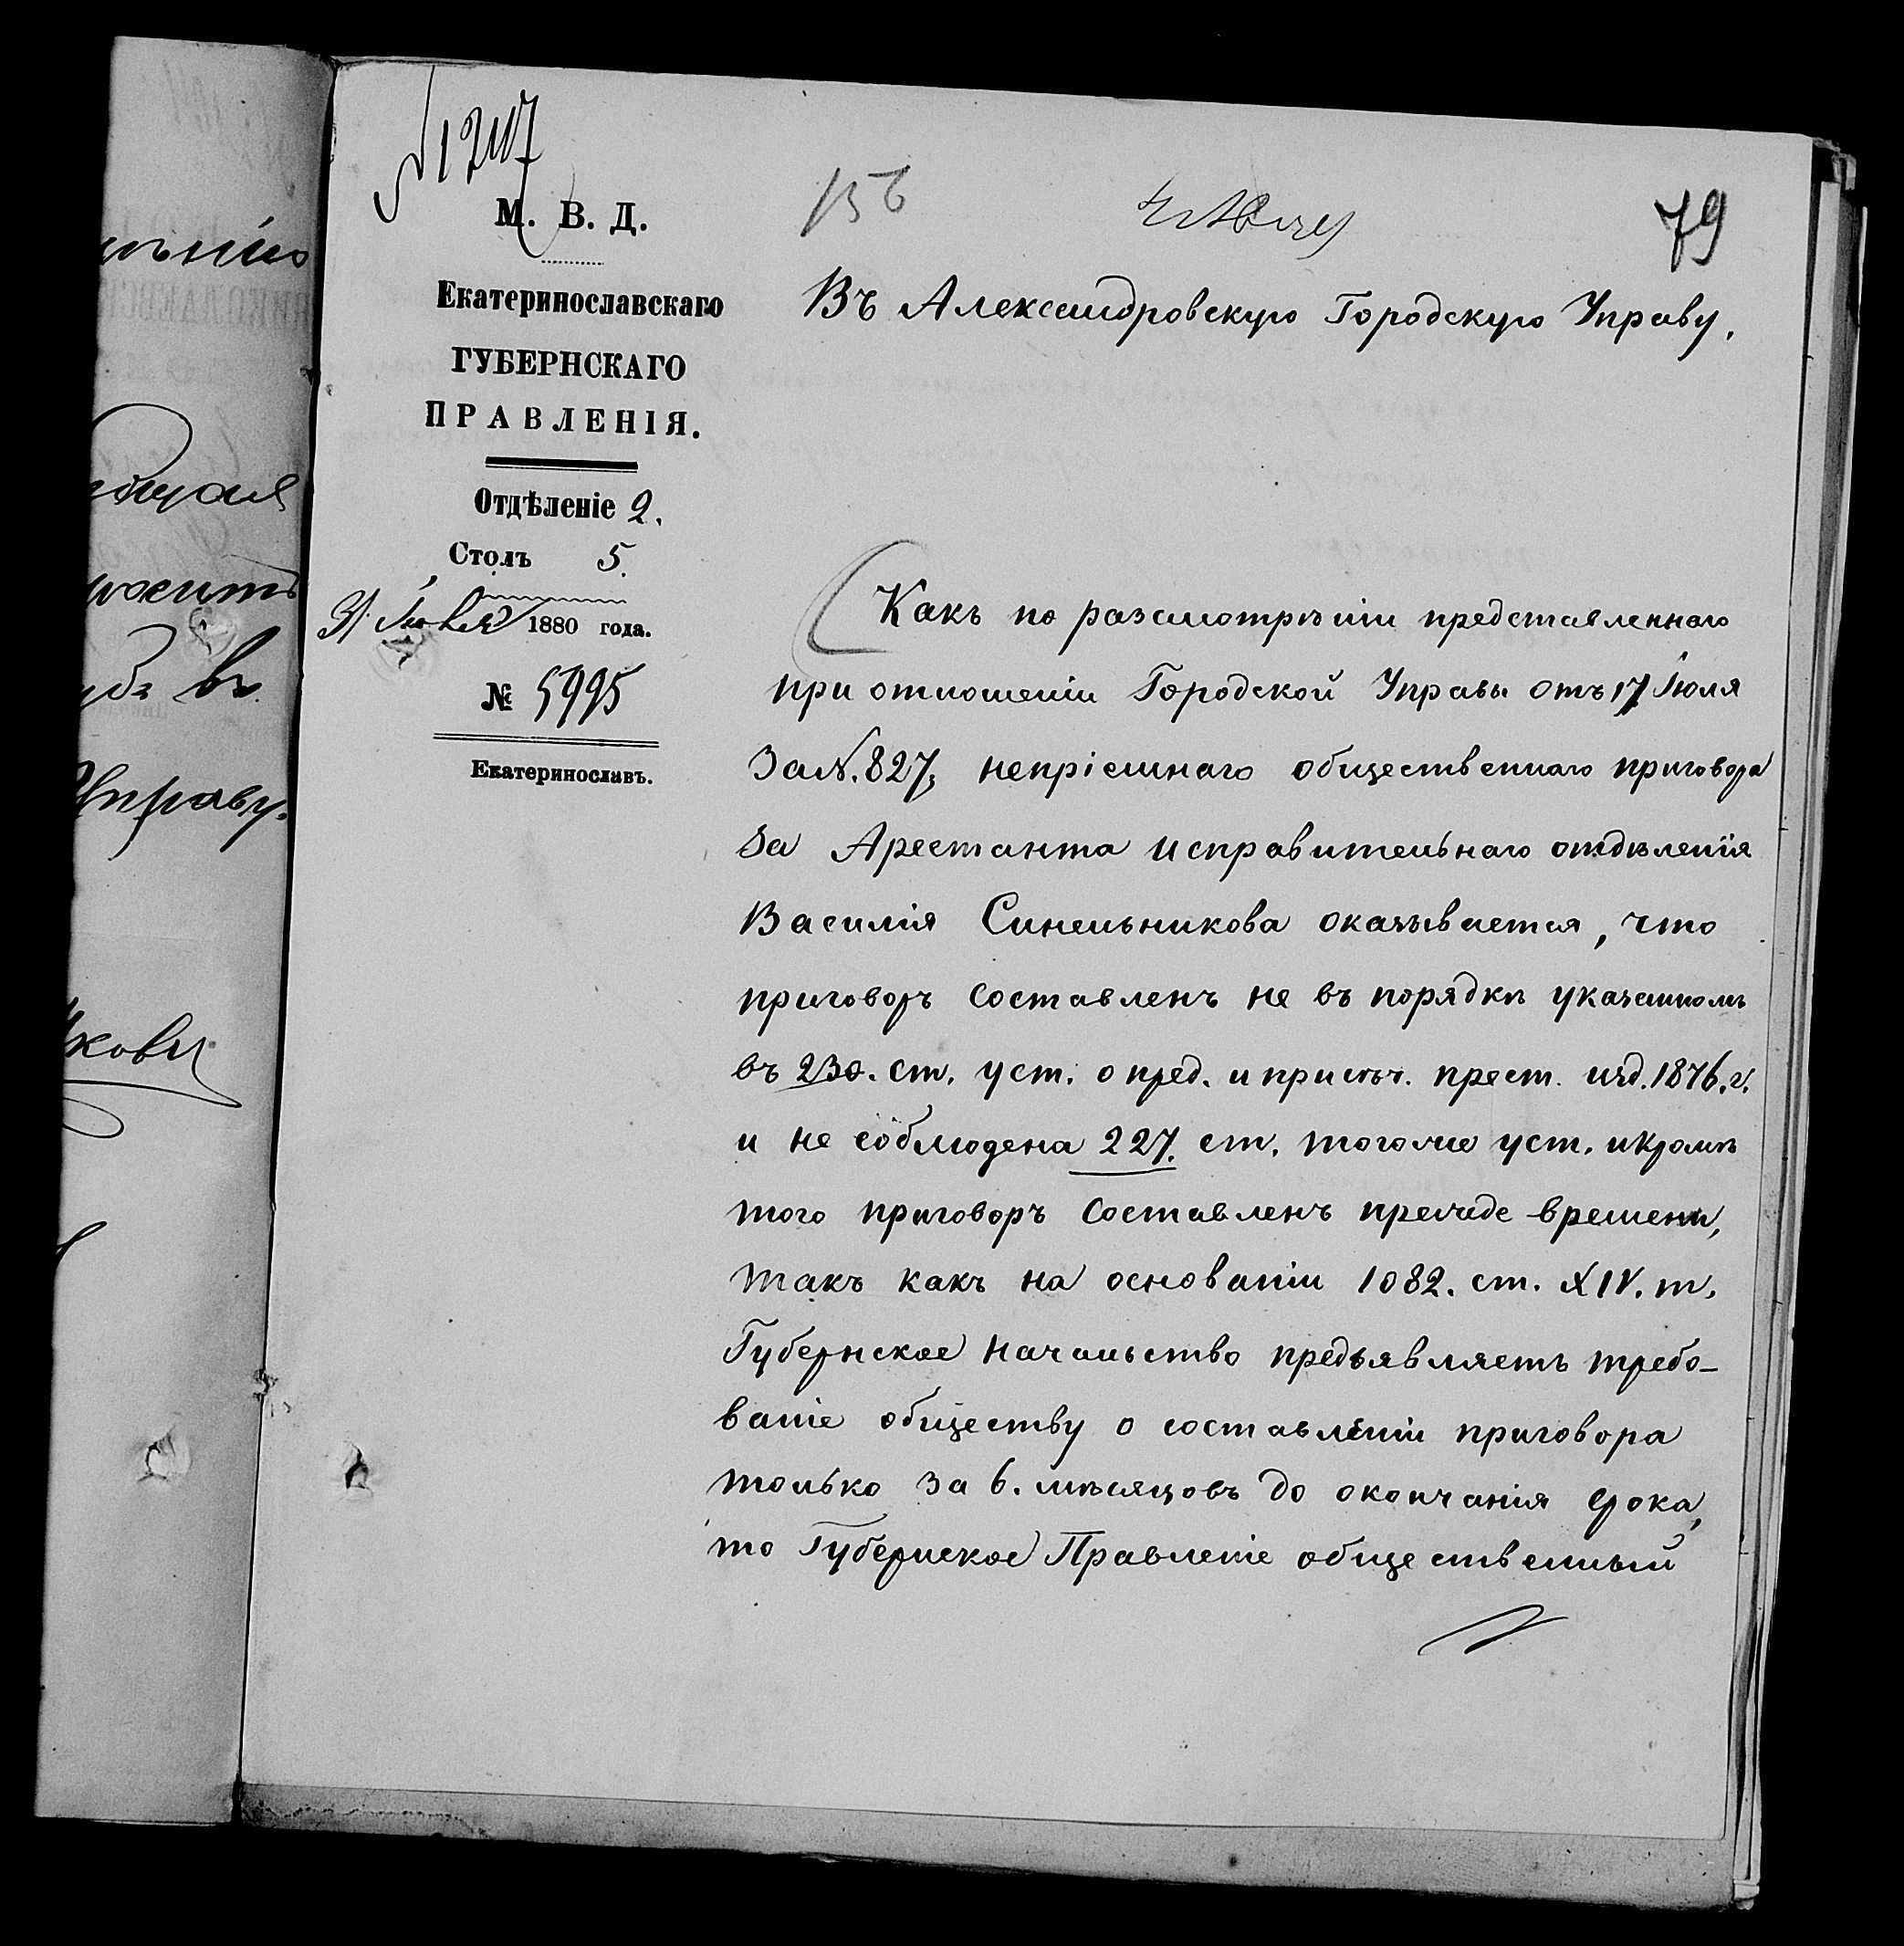 79
М. В. Д.
Екатеринославскаго
ГУБЕРНСКАГО
ПРАВЛЕНІЯ.
Отдѣленіе 2.
Столъ 5.
1880 года.
№ 5995
Екатеринославъ.
Въ Александровскую Городскую Управу.
Какъ по разсмотрѣніи представленнаго
при отношеніи Городской Управы отъ 17 Іюля
За N. 827, непріемнаго общественнаго приговора
за Арестанта исправительнаго отдѣленія
Василія Синельникова оказывается, что
приговоръ составленъ не въ порядкѣ указанномъ
въ 230. ст. уст. о пред. и присѣч. прест. изд. 1876. г.
и не соблюдена 227. ст. тогоже уст. и кромѣ
того приговоръ составленъ прежде времени,
такъ какъ на основаніи 1082. ст. XIV. т.
Губернское начальство предъявляетъ требо-
ваніе обществу о составленіи приговора
только за 6. мѣсяцовъ до окончанія срока,
то Губернское Правленіе общественный
нію
въ
Управу.